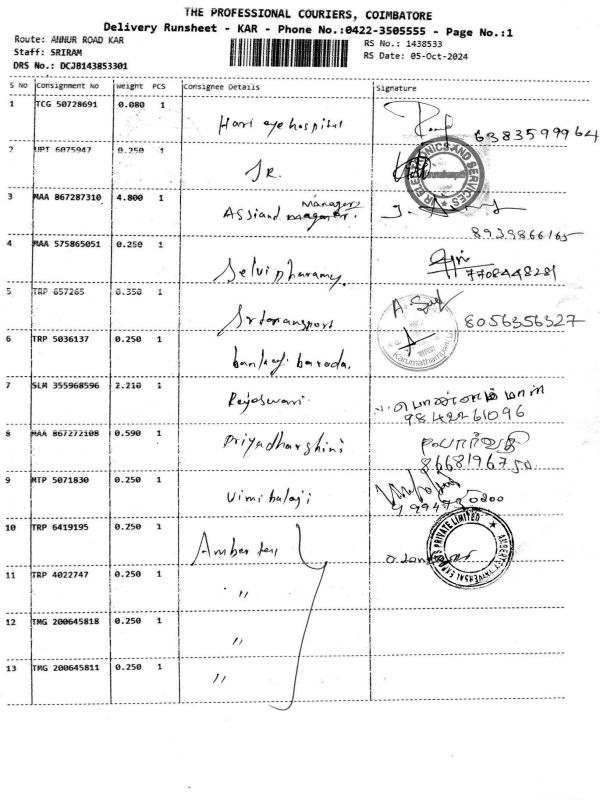 THE PROFESSIONAL COURIERS, COIMBATORE
Delivery Runsheet - KAR - Phone No.:0422-3505555 - Page No.:1
Route: ANNUR ROAD KAR
RS No.: 1438533
Staff: SRIRAM
RS Date: 05-Oct-2024
DRS No.: DCJB143853301
S No Consignment No Weight PCS Consignee Details Signature
1 TCG 50728691 0.080 1 Hari eye hospital 6383599964
2 UPT 6075947 0.250 1 SR. ELECTRONICS AND SERVICES
3 MAA 867287310 4.800 1 Manager
8939866165
4 MAA 575865051 0.250 1 7708448281
5 TRP 657265 0.350 1 8056356327
6 TRP 5036137 0.250 1 baroda.
Karumathampatti
7 SLM 355968596 2.210 1 Rajeswari
9842261096
8 MAA 867272108 0.590 1 Priyadharshini
9 MTP 5071830 0.250 1 Vimibalaji
10 TRP 6419195 0.250 1 Amber
PRIVATE LIMITED
11 TRP 4022747 0.250 1 "
12 TMG 200645818 0.250 1 "
13 TMG 200645811 0.250 1 "